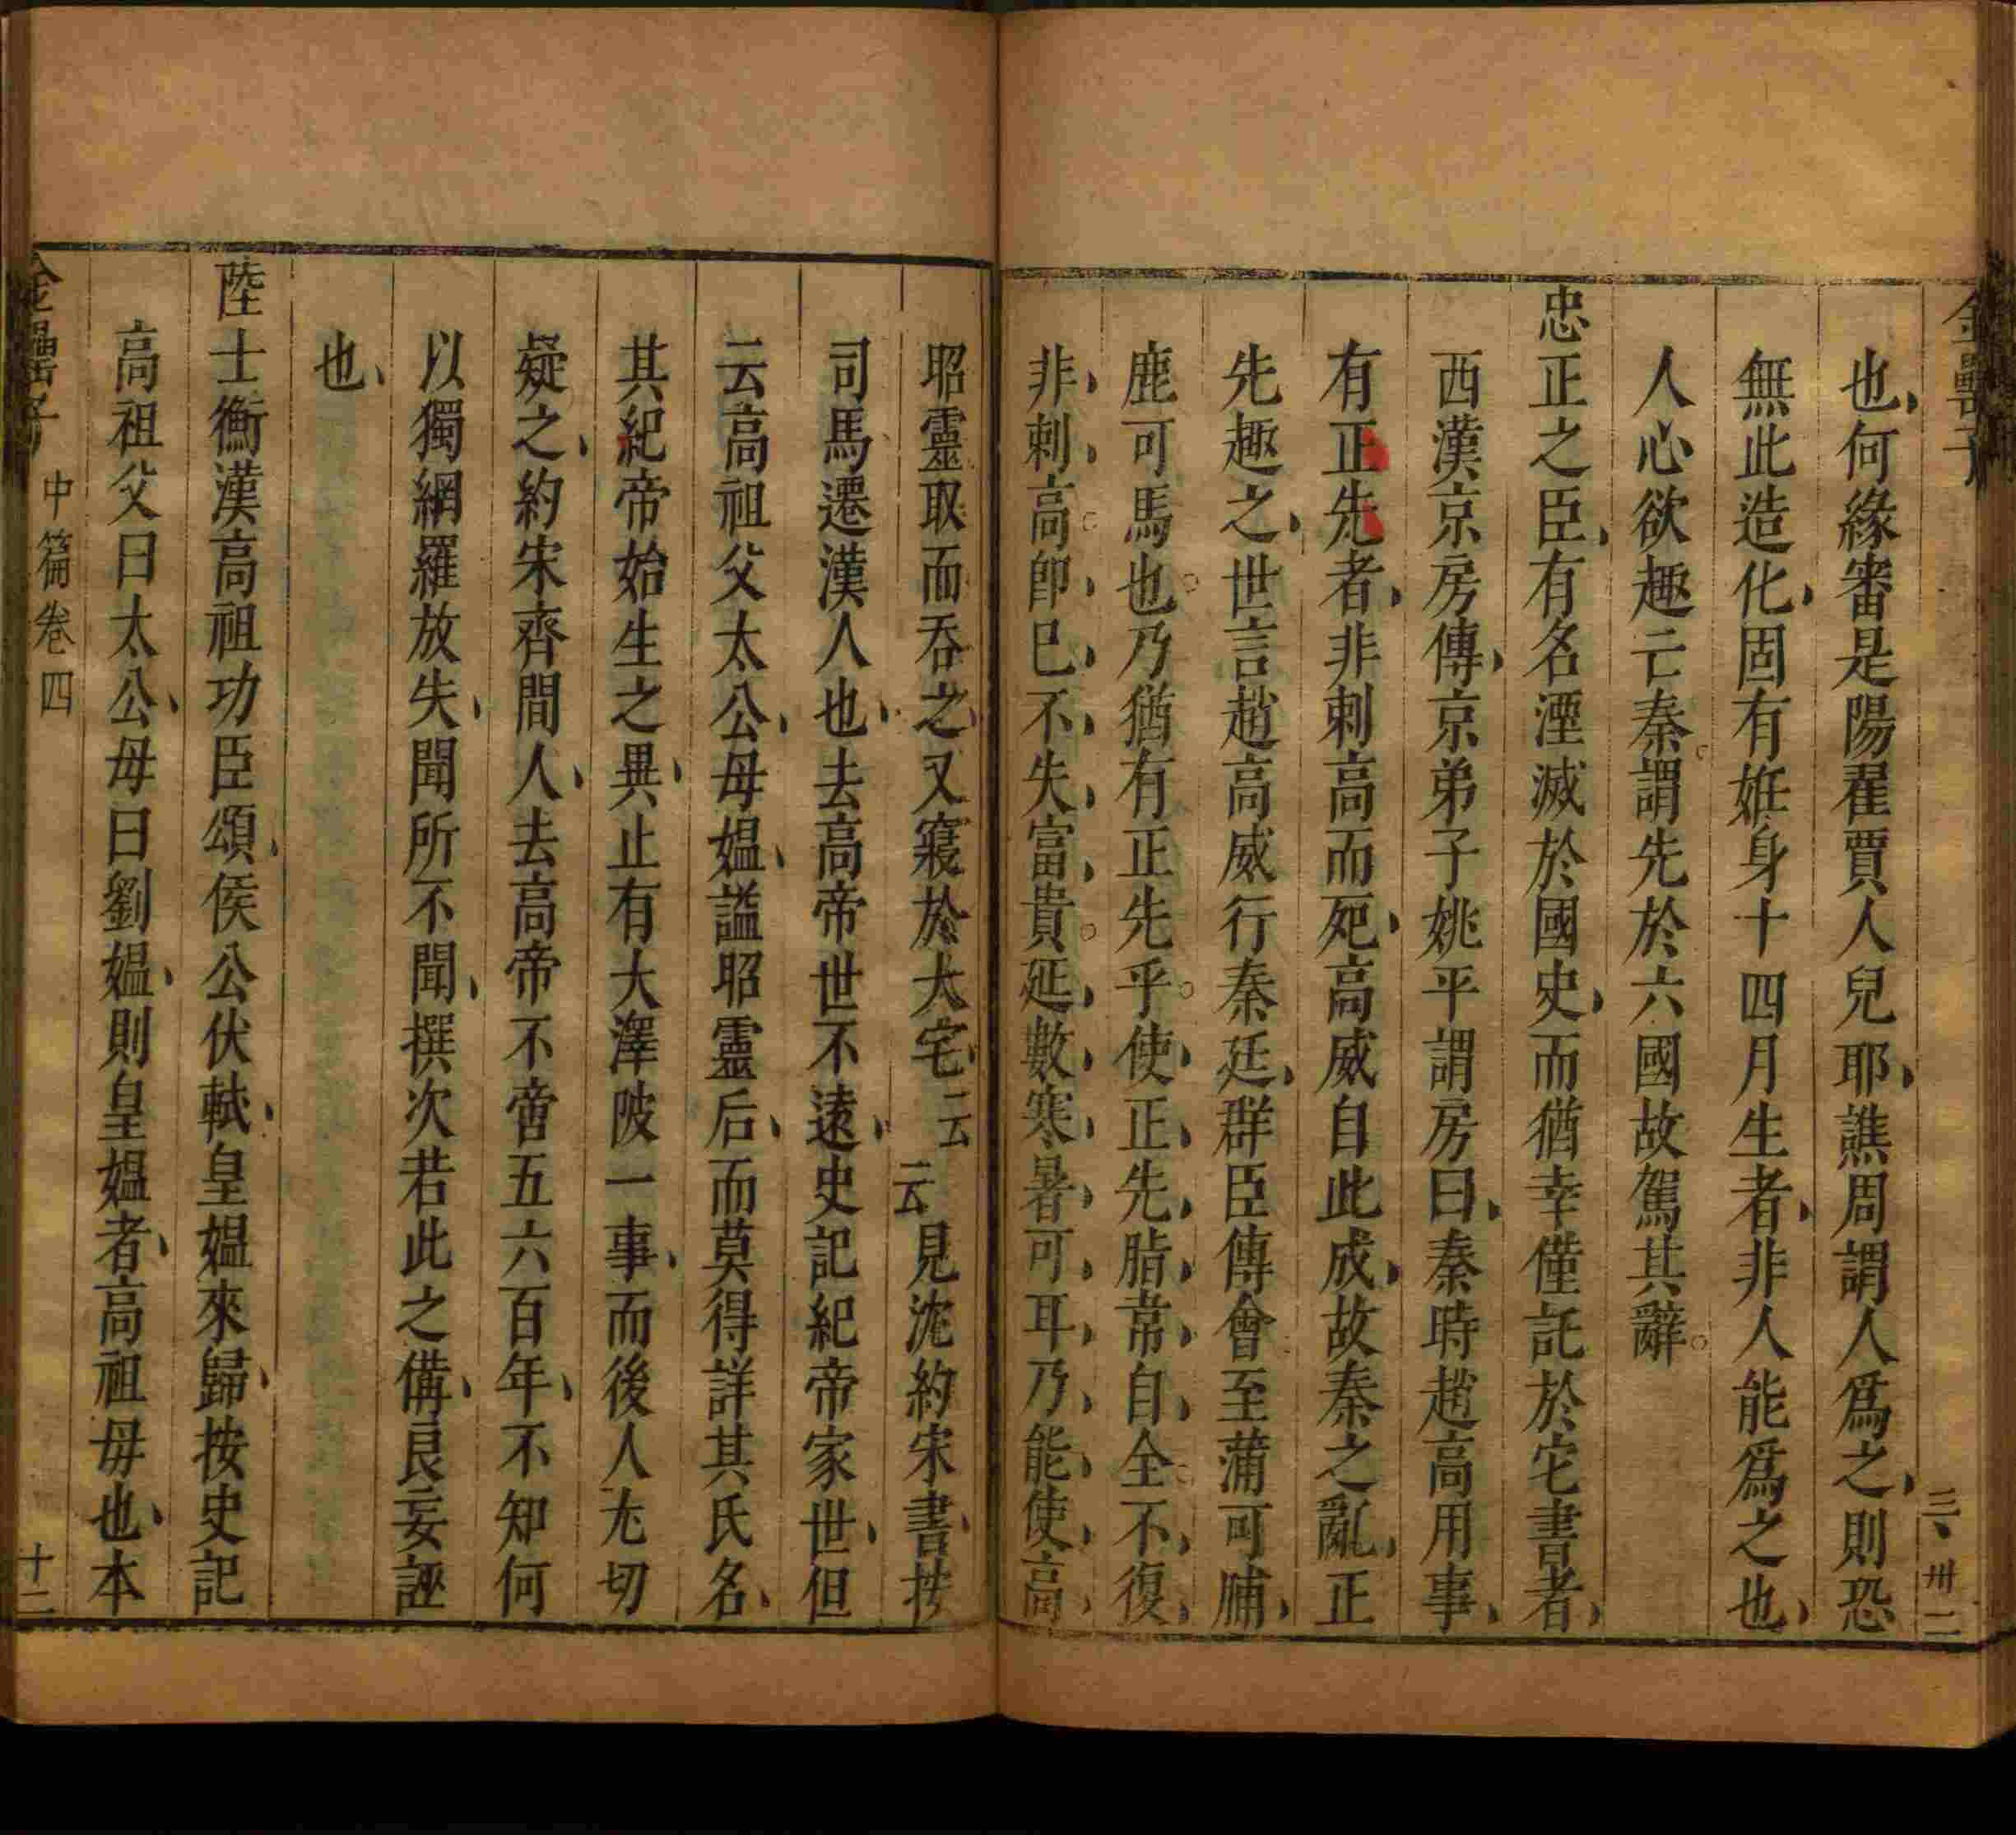 金罍子
三、卅二
也何緣審是陽翟賈人兒耶譙周謂人爲之則恐
無此造化固有姙身十四月生者非人能爲之也
人心欲趣亡秦謂先於六國故駕其辭
忠正之臣有名湮滅於國史而猶幸僅託於宅書者
西漢京房傳京弟子姚平謂房曰秦時趙高用事
有正先者非刺高而死高威自此成故秦之亂正
先趣之世言趙高威行秦廷群臣傳會至蒲可脯
鹿可馬也乃猶有正先乎使正先脂韋自全不復
非刺高卽巳不失富貴延數寒暑可耳乃能使高
昭靈取而吞之又寢於大宅云云見沈約宋書按
司馬遷漢人也去高帝世不遠史記紀帝家世但
云高祖父太公母媼謚昭靈后而莫得詳其氏名
其紀帝始生之異止有大澤陂一事而後人尢切
疑之約宋齊間人去高帝不啻五六百年不知何
以獨網羅放失聞所不聞撰次若此之備良妄誣
也
陸士衡漢高祖功臣頌侯公伏軾皇媼來歸按史記
高祖父曰太公母曰劉媼則皇媼者高祖毋也本
金罍子
中篇卷四
十二